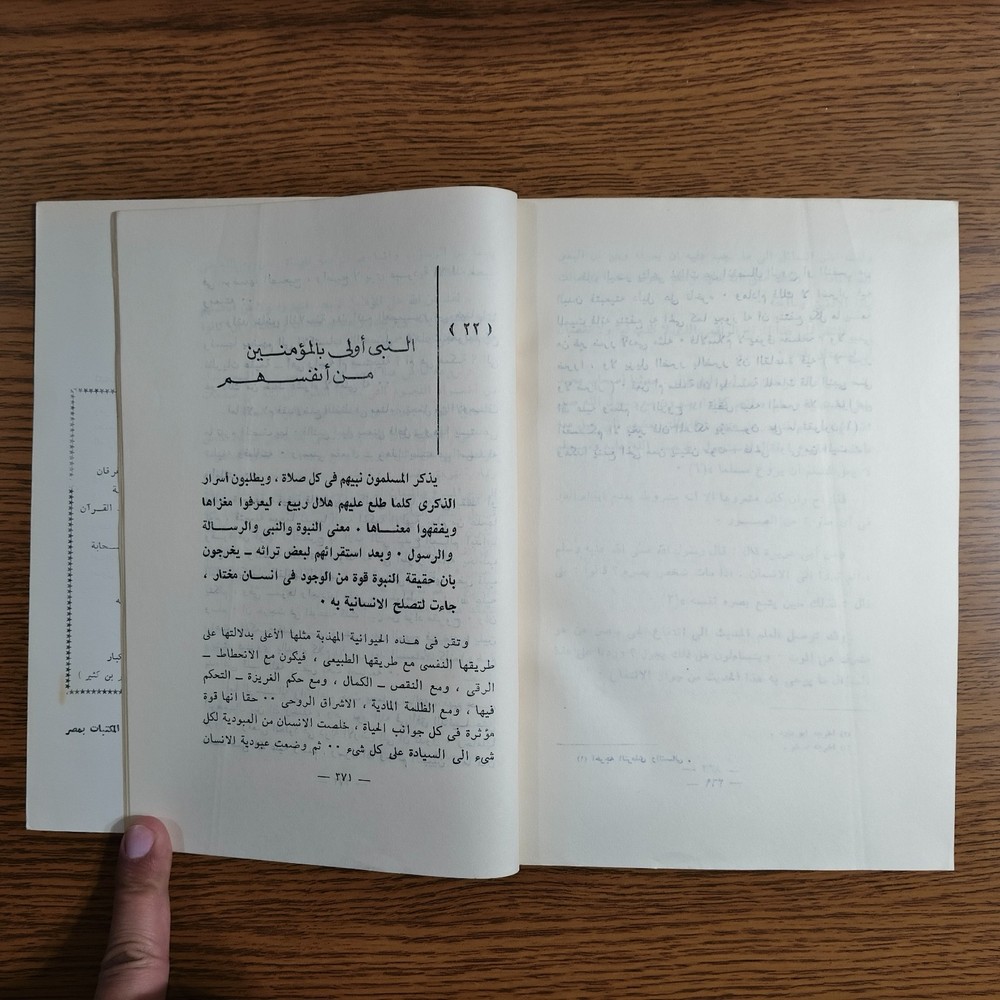 ( ٢٢ )
النبى أولى بالمؤمنين
من أنفسهم
يذكر المسلمون نبيهم فى كل صلاة ، ويطلبون أسرار
الذكرى كلما طلع عليهم هلال ربيع ، ليعرفوا مغزاها
ويفقهوا معناها ٠ معنى النبوة والنبى والرسالة
والرسول ٠ وبعد استقرائهم لبعض تراثه ــ يخرجون
بان حقيقة النبوة قوة من الوجود فى انسان مختار ،
جاءت لتصلح الانسانية به ٠
وتقر فى هذه الحيوانية المهذبة مثلها الأعلى بدلالتها على
طريقها النفسى مع طريقها الطبيعى ، فيكون مع الانحطاط ــ
الرقى ، ومع النقص ــ الكمال ، ومع حكم الغريزة ــ التحكم
فيها ، ومع الظلمة المادية ، الاشراق الروحى ٠٠ حقا انها قوة
مؤثرة فى كل جوانب الحياة ، خلصت الانسان من العبودية لكل
شىء الى السيادة على كل شىء ٠٠ ثم وضعت عبودية الانسان
— ٢٧١ —
القرآن
ـر بن كثير )
المكتبات بمصر